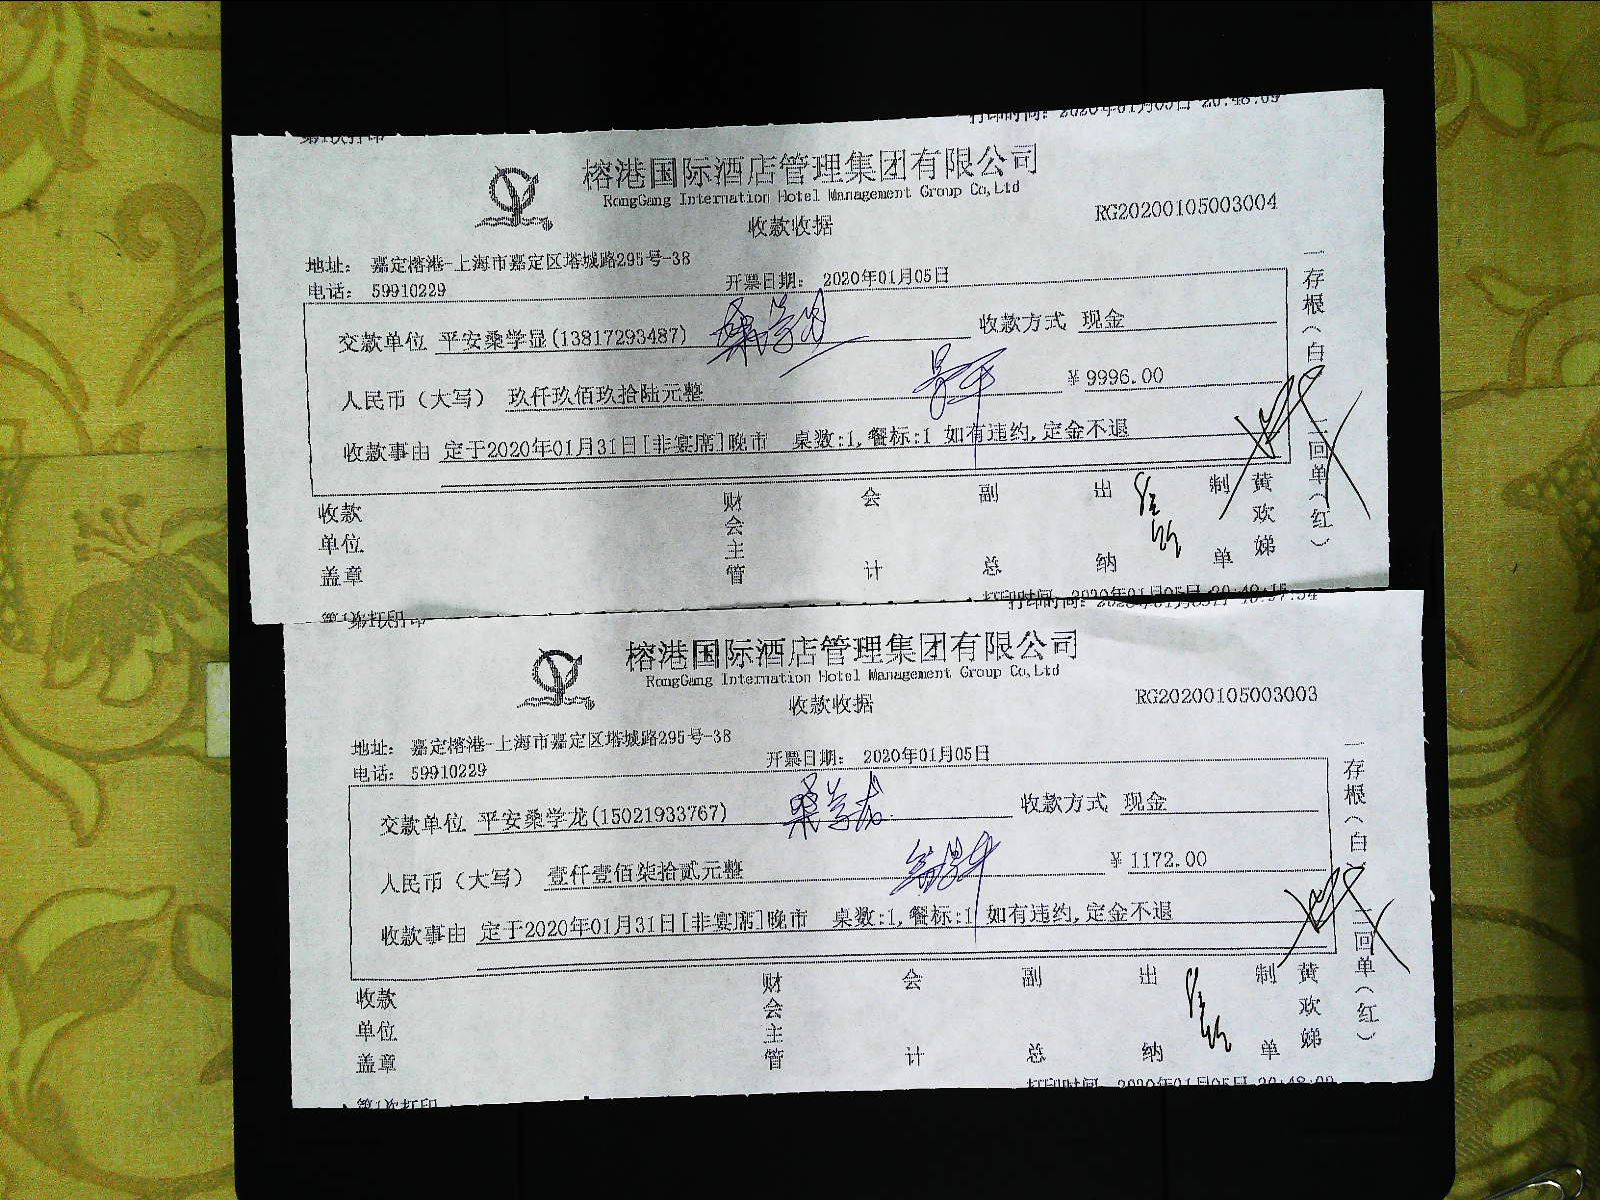 第1次打印 打印时间: 2020年01月05日 20:48:09
榕港国际酒店管理集团有限公司
RongGang Internation Hotel Management Group Co,Ltd
收款收据
RG20200105003004
地址: 嘉定榕港-上海市嘉定区塔城路295号-38
电话: 59910229
开票日期: 2020年01月05日
交款单位 平安桑学显(13817293487) 收款方式 现金
人民币（大写） 玖仟玖佰玖拾陆元整 ¥ 9996.00
收款事由 定于2020年01月31日[非宴席]晚市 桌数:1,餐标:1 如有违约,定金不退
一存根（白） 二回单（红）
收款单位盖章 财会主管 会计 副总 出纳 制单 黄欢娣
第1次打印
榕港国际酒店管理集团有限公司
RongGang Internation Hotel Management Group Co,Ltd
收款收据
RG20200105003003
地址: 嘉定榕港-上海市嘉定区塔城路295号-38
电话: 59910229
开票日期: 2020年01月05日
交款单位 平安桑学龙(15021933767) 桑学龙 收款方式 现金
人民币（大写） 壹仟壹佰柒拾贰元整 ¥ 1172.00
收款事由 定于2020年01月31日[非宴席]晚市 桌数:1,餐标:1 如有违约,定金不退
一存根（白） 二回单（红）
收款单位盖章 财会主管 会计 副总 出纳 制单 黄欢娣
第1次打印 打印时间 2020年01月05日 20:48:09